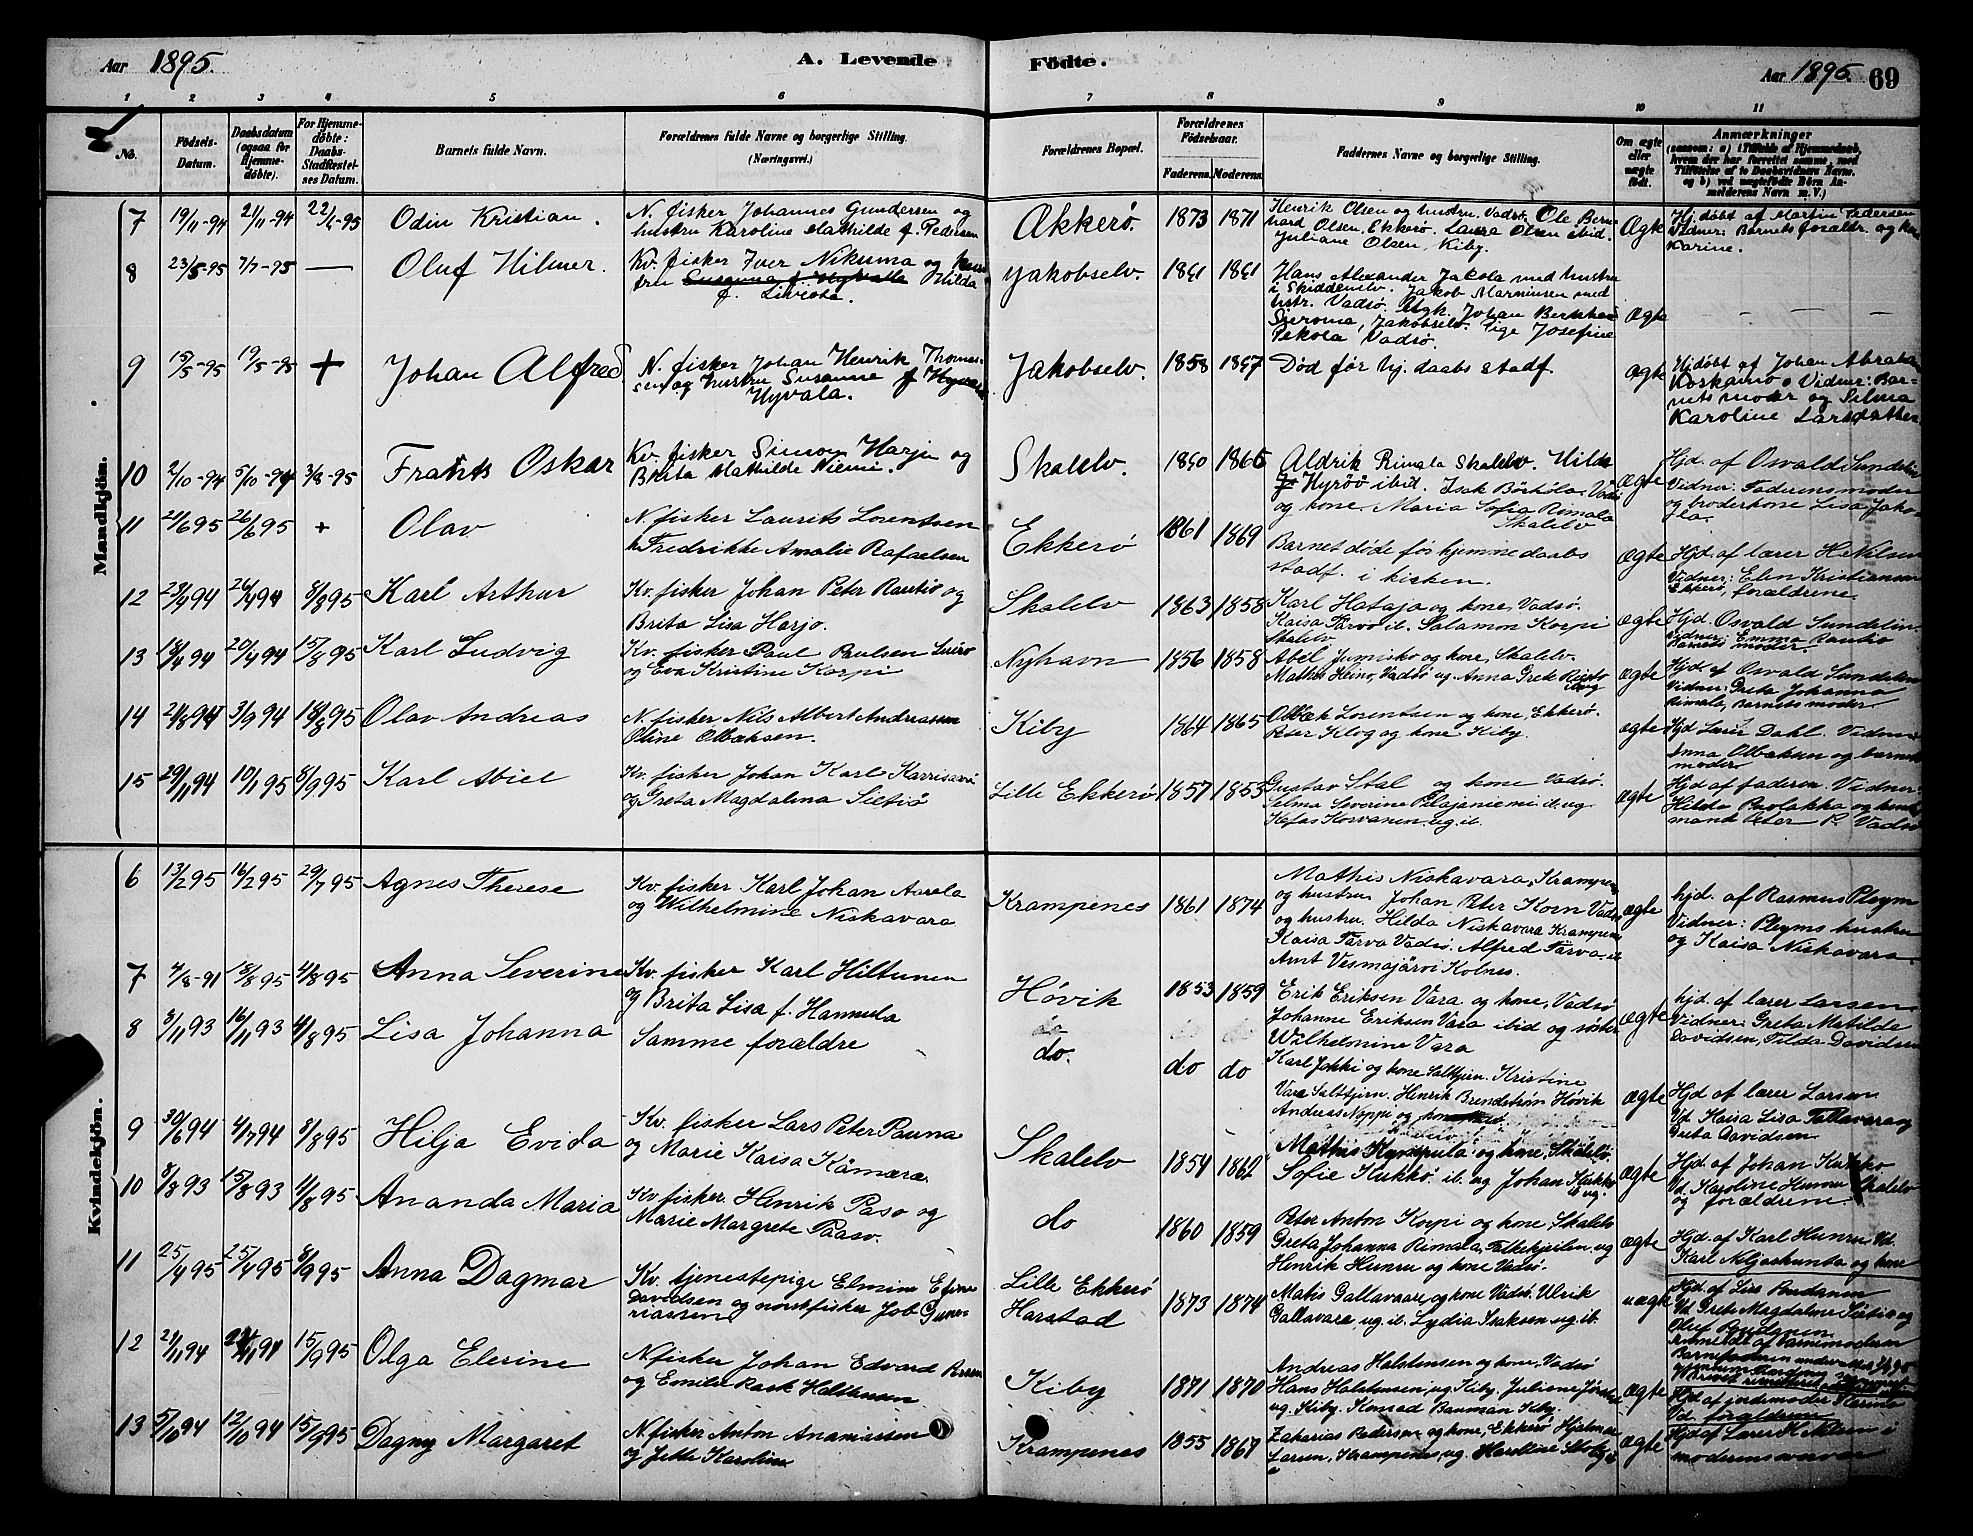 Aar 1895. A. Levende Födte. Aar 1895. 69
1 2 3 4 5 6 7 8 9 10 11
No.
Födsels-Datum.
Daabsdatum (ogsaa for Hjemme-döbte).
For Hjemme-döbte: Daabs-Stadfæstel-ses Datum.
Barnets fulde Navn.
Forældrenes fulde Navne og borgerlige Stilling.
(Næringsvei.)
Forældrenes Bopæl.
Forældrenes Födselsaar.
Faderens. Moderens.
Faddernes Navne og borgerlige Stilling.
Om ægte eller uægte födt.
Anmærkninger
(saasom: a) i Tilfælde af Hjemmedaab, hvem der har forrettet samme, med Tilföielse af to Daabsvidners Navne, og b) ved uægtefödte Börn Anmelderens Navn m. V.)
Mandkjön.
7 19/11-94 21/11-94 22/1-95 Odin Kristian.
N. fisker Johannes Gundersen og
hustru Karoline Mathilde f. Pedersen
Ækkerö. 1873 1871
Henrik Olsen og hustru. Vadsö. Ole Bern-
hard Olsen, Ekkerö. Laura Olsen ibid.
Juliane Olsen, Kiby.
Ægte
Hj. döbt af Martin Pedersen
Vidner: Barnets forældr. og
Karine.
8 23/5-95 7/7-95 — Oluf Hilmer.
Kv. fisker Iver Nikuma og hus-
tru Susanna f. Hyvalla Hilda
f.
Jakobselv. 1841 1841
Hans Alexander Jakola med hustru
i Skiddenelv. Jakob Marninsen med
hustr. Vadsö. Ugk. Johan
Jakobselv. Pige Josefine
Pekola Vadsö.
ægte — — —
9 15/5-95 19/5-95 + Johan Alfred.
N. fisker Johan Henrik Thomas-
sen og hustru Susanne f. Hyvala
Hyvala.
Jakobselv. 1858 1847 Död för hj. daabs stadf. ægte
Hjdöbt af Johan Abraham
Koskamo Vidner: Bar-
nets moder og Selma
Karoline Larsdatter
10 2/10-94 5/10-94 3/8-95 Frants Oskar
Kv. fisker Simon Harju og
Brita Mathilde Niemi.
Skalelv. 1840 1865
Aldrik Rimala Skalelv. Hilda
Hyröö ibid. Isak Vadsö
og kone. Maria Sofia Romala
Skalelv
ægte
Hjd. af Osvald Sundelin
Vidner: Faderens moder
og broderkone Lisa
11 21/6 95 26/6 95 + Olav
N. fisker Laurits Lorentsen
h. Fredrikke Amalie Rafaelsen
Ekkerö 1861 1869
Barnet döde för hjemmedaabs
stadf. i kirken.
ægte
Hjd. af lærer H. Nilsen
Vidner: Elen Kristiansen
Ekkerö, forældrene.
12 23/4 94 26/4 94 8/8 95 Karl Arthur
Kv. fisker Johan Peter Rautio og
Brita Lisa Harjo.
Skalelv 1863 1858
Karl Hataja og kone, Vadsö.
Kaisa Tarvo ib. Salamon Korpi
Skalelv
ægte
Hjd. Osvald Sundelin.
Vidner: Emma Rautio
Barnets moder.
13 18/4 94 20/4 94 15/8 95 Karl Ludvig
Kv. fisker Paul Paulsen
og Eva Kristine Korpi
Nyhavn 1856 1858
Abel Jumisko og kone, Skalelv.
Mathis Heino, Vadsö ug. Anna Grete
ægte
Hjd. af Osvald Sundelin
Vidner: Greta Johanna
Rimala, Barnets moder.
14 21/8 94 3/9 94 18/8 95 Olav Andreas
N. fisker Nils Albert Andreassen
Oline Olbeksen.
Kiby 1864 1865
Olbæk Lorentsen og kone, Ekkerö.
Peter Klog og kone Kiby.
ægte
Hjd Dahl. Vidner
Anna Olbaksen og barnets
moder
15 29/11 94 10/1 95 8/9 95 Karl Abiel
Kv. fisker Johan Karl
og Greta Magdalena Sietiö
Lille Ekkerö 1857 1853
Gustav Stal og kone Vadsö.
Selma Severine Pelajaniemi ib. ug.
Kefas Korvanen. ug. ib.
ægte
Hjd. af faderen. Vidner:
Hilda og hendes
mand Peter P. Vadsö
Kvindekjön.
6 13/2 95 16/2 95 29/7 95 Agnes Therese
Kv. fisker Karl Johan Aarela
og Wilhelmine Niskavara
Krampenes 1861 1874
Mathis Niskavara, Krampenes
og hustru Johan Peter Korn Vadsö
og hustru. Hilda Niskavara Krampenes
Kaisa Tarva Vadsö. Alfred Tarva ib
Arnt Vesmajärvi Kolnes.
ægte
hjd. af Rasmus Pleym
Vidner: Pleyms hustru
og Kaisa Niskavara.
7 4/8-91 18/8 95 4/8 95 Anna Severine
Kv. fisker Karl Hiltunen
og Brita Lisa f. Hannula
Hövik 1853 1859
Erik Eriksen Vara og kone, Vadsö
Johanne Eriksen Vara ibid og söster
Wilhelmine Vara
ægte
hjd. af lærer Larsen
Vidner: Greta Matilde
Davidsen, Tilda Davidsen
8 3/11 93 16/11 93 4/8 95 Lisa Johanna Samme forældre
do. do do
Karl Jokki og kone Saltbjern. Kristine
Vara Saltbjern. Henrik Brendström Hövik
Andreas Noppi og kone
ægte
Hjd af lærer Larsen
Vd. Kaisa Lisa Tallavara og
Greta Davidsen
9 30/6 94 4/7 94 8/8 95 Hilja Evida
Kv. fisker Lars Peter Pauna
og Marie Kaisa Kämärä
Skalelv 1854 1862
Mathis Kumpula og kone, Skalelv.
Sofie Kukkö. ib. ug Johan Kukko
ib ug.
ægte
Hjd. af Johan Kukko
Vd. Karoline Skalelv
og forældrene.
10 8/8 93 15/8 93 11/8 95 Ananda Maria
Kv fisker. Henrik Paso og
Marie Margrete Paaso.
do 1860 1859
Peter Anton Korpi og kone, Skalelv
Greta Johanna Rimala, Falkekjeilen, ug
Henrik Hunru og kone Vadsö.
ægte
Hjd. af Karl Hunru Vd.
Karl og kone
11 25/4 95 25/4 95 8/9 95 Anna Dagmar
Kv. tjenestepige Elmine
Davidsen og norsk fisker Job
Lille Ekkerö
Harstad 1873 1874
Matis Gallavaara og kone Vadsö. Ulrik
Gallavara, ug. ib. Lydia Isaksen ug. ib.
uægte
Hjd. af
Vd. Grete Magdalene og
Oluf
12 21/11 94 94 15/9 95 Olga Elerine
N. fisker Johan Edvard
og Emilie Rask Halthusen
Kiby 1871 1870
Andreas Halstensen og kone, Vadsö
Hans Halstensen, ug. Kiby. Juliene
ug. Kiby. Konrad Bauman Kiby.
ægte
Hjd. af jordemoder
Vd. forældrene
13 5/10 94 12/10 94 15/9 95 Dagny Margaret
N. fisker Anton Ananiassen
og Jette Karoline
Krampenes 1855 1867
Zakarias Pedersen og kone, Ekkerö Hjalmar
Larsen, Krampenes, ug.
ægte
Hjd af Lærer i
moderens